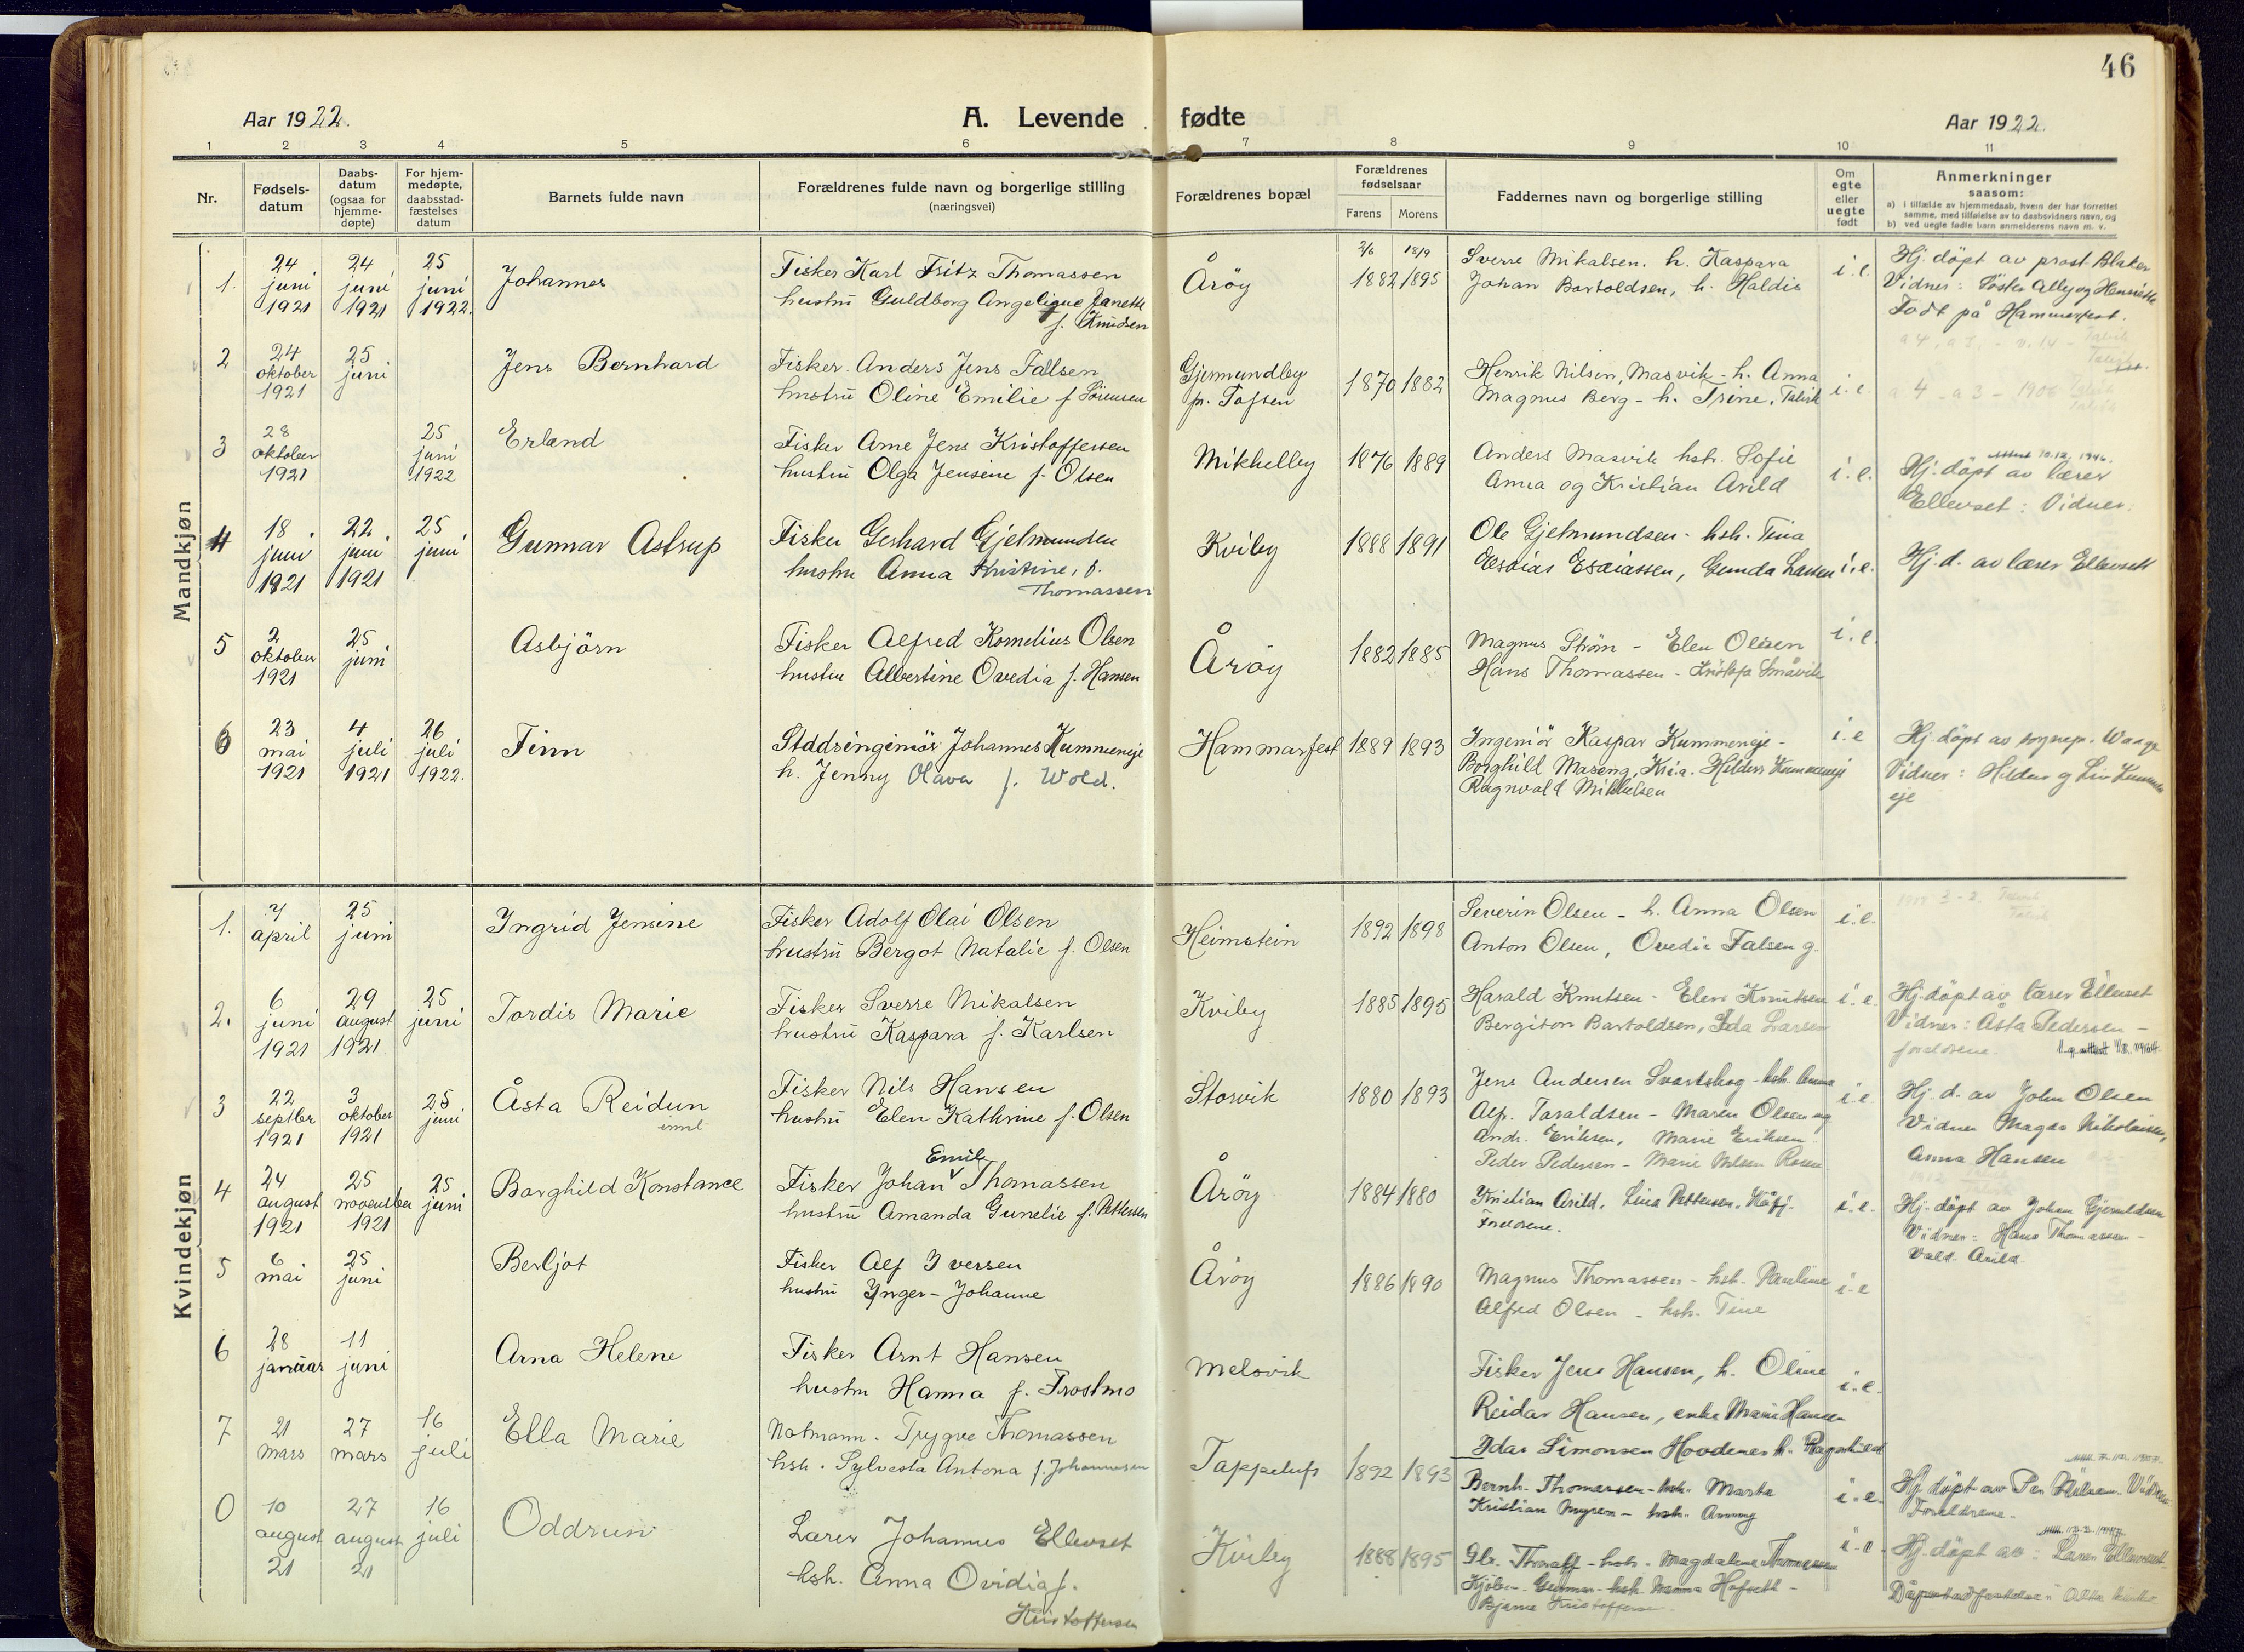 46
Aar 1922.
A. Levende fødte
Aar 1922.
1 2 3 4 5 6 7 8 9 10 11
Nr.
Fødsels-
datum
Daabs-
datum
(ogsaa for
hjemme-
døpte)
For hjem-
medøpte,
daabsstad-
fæstelses
datum
Barnets fulde navn
Forældrenes fulde navn og borgerlige stilling
(næringsvei)
Forældrenes bopæl
Forældrenes
fødselsaar
Farens Morens
Faddernes navn og borgerlige stilling
Om
egte
eller
uegte
født
Anmerkninger
saasom:
a) i tilfælde av hjemmedaab, hvem der har forrettet
samme, med tilføielse av to daabsvidners navn, og
b) ved uegte fødte barn anmelderens navn m. v.
Mandkjøn
1. 24 juni 1921 24 juni 1921 25 juni 1922. Johannes
Fisker Karl Fritz Thomassen
hustru Guldborg Angelique Janette
f. Knudsen
Årøy
2/6 18/9
1882 1895
Sverre Mikalsen. h. Kaspara
Johan Bartoldsen, h. Haldis
i. e.
Hj. döpt av prost Blaker
Vidner: Søster Alby og Henriette
Født på Hammerfest.
2 24 oktober 1921 25 juni Jens Bernhard
Fisker Anders Jens Fallsen
hustru Oline Emilie f Sörensen
Gjermundby
pr. Tofsen
1870 1882
Henrik Nilsen, Masvik - h. Anna
Magnus Berg - h. Trine, Talvik
i. e.
a 4 - a 3 - 1906 Talvik
3 28 oktober 1921 25 juni 1922 Erland
Fisker Arne Jens Kristoffersen
hustru Olga Jensine f. Olsen
Mikkelby
1876 1889
Anders Masvik hst. Sofie
Anna og Kristian Arild
i. e.
Hj. döpt av lærer
Ellevset: Vidner:
4 18 juni 1921 22 juni 1921 25 juni Gunnar Astrup
Fisker Gerhard Gjelmunden
hustru Anna Kristine, f.
Thomassen
Kviby
1888 1891
Ole Gjelmundsen - hsh. Tina
Esaias Esaiassen, Gunda Larsen
i. e.
Hj. d. av lærer Ellevset
5 2 oktober 1921 25 juni Asbjörn
Fisker Alfred Kornelius Olsen
hustru Albertine Ovedia f. Hansen
Årøy
1882 1885
Magnus Strøm - Elen Olsen
Hans Thomassen - Småvik
i. e.
6 23 mai 1921 4 juli 1921 26 juli 1922. Finn
Stadsingeniör Johannes Kummeneje
h. Jenny Olava f. Wold.
Hammerfest
1889 1893
Ingeniör Kaspar Kummeneje -
Borghild Maseng, Kr.a. Hildur Kummeneje
Ragnvald Mikkelsen
i. e
Hj. döpt av sognepr. Waage
Vidner: Hildur og Liv Kummen
eje
Kvindekjøn
1. 7 april 25 juni Ingrid Jensine
Fisker Adolf Olai Olsen
hustru Bergot Natalie f. Olsen
Heimstein
1892 1898
Severin Olsen - h. Anna Olsen
Anton Olsen, Ovedie Falsen g.
i. e.
2. 6 juni 1921 29 august 1921 25 juni Tordis Marie
Fisker Sverre Mikalsen
hustru Kaspara f. Karlsen
Kviby
1885 1895
Harald Knutsen - Elen Knutsen
Bergiton Bartoldsen, Ida Larsen
i. e.
Hj. döpt av lærer Ellevset
Vidner: Asta Pedersen -
foreldrene.
3 22 septber 1921 3 oktober 1921 25 juni Åsta Reidun
Fisker Nils Hansen
hustru Elen Kathrine f. Olsen
Storvik
1880 1893
Jens Andersen Svartskog - hsh. Anna
Alf. Taraldsen - Maren Olsen og
Andr. Eriksen, Marie Eriksen.
Peder Pedersen - Marie Nilsen
i. e.
Hj. d. av John Olsen
Vidner Magda Nikolaisen,
Anna Hansen
4 24 august 1921 25 november 1921 25 juni Borghild Konstance
Fisker Johan Emil Thomassen
hustru Amanda Gunelie f. Pettersen
Årøy
1884 1880
Kristian Arild, Lina Pettersen, Kåfj.
Foreldrene.
i. e.
Hj. döpt av Johan Gjermundsen
Vidner: Hans Thomassen -
Vald. Arild.
5 6 mai 25 juni Berljot
Fisker Alf Iversen
hustru Inger-Johanne
Årøy
1886 1890
Magnus Thomassen - hsh. Pauline
Alfred Olsen - hsh. Tine
i. e
6 28 januar 11 juni Arna Helene
Fisker Arnt Hansen
hustru Hanna f. Frostmo
Melsvik
Fisker Jens Hansen, h. Oline
Reidar Hansen, enke Marie Hansen
i. e.
7 21 mars 27 mars 16 juli Ella Marie
Notmann - Trygve Thomassen
hsh. Sylvesta Antona f. Johannesen
Tappeluft
1892 1893
Idar Simonsen Hovdenes h. Ragnhild
Bernh. Thomassen - hsh. Marta
Kristian Myren - hsh. Ammy
i. e.
Hj. döpt av Per Nilsen. Vidner
Foreldrene.
0 10 august 21 27 august 21 16 juli Oddrun
Lærer Johannes Ellevset
hsh. Anna Ovidia f.
Kristoffersen
Kviby
1888 1895
Thoralf - hsh. Magdalene Thomassen
Kjøbm. Gunnar - hsh. Hofseth -
Bjarne Kristoffersen.
i. e.
Hj. döpt av: Lærer Ellevset